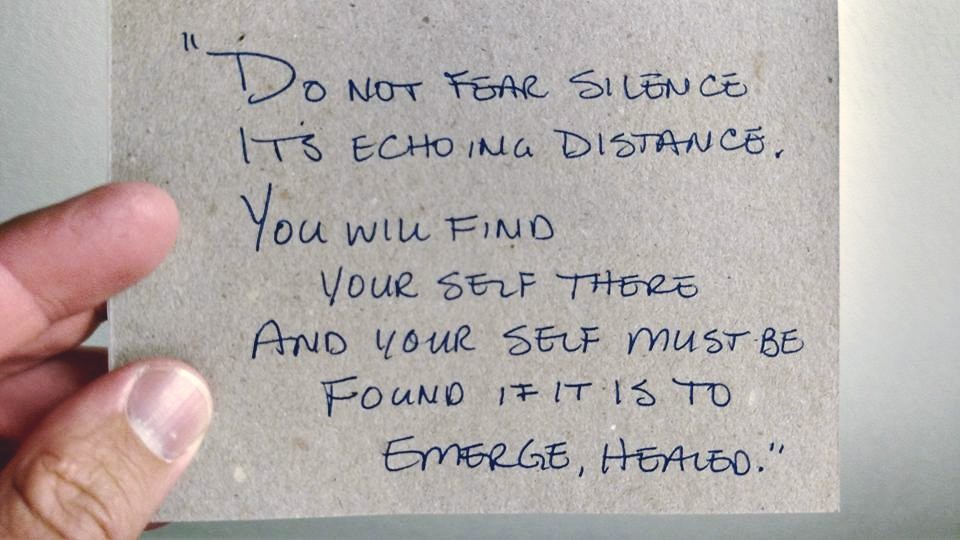 "DO NOT FEAR SILENCE
IT'S ECHOING DISTANCE.
YOU WILL FIND
YOUR SELF THERE
AND YOUR SELF MUST BE
FOUND IF IT IS TO
EMERGE, HEALED."